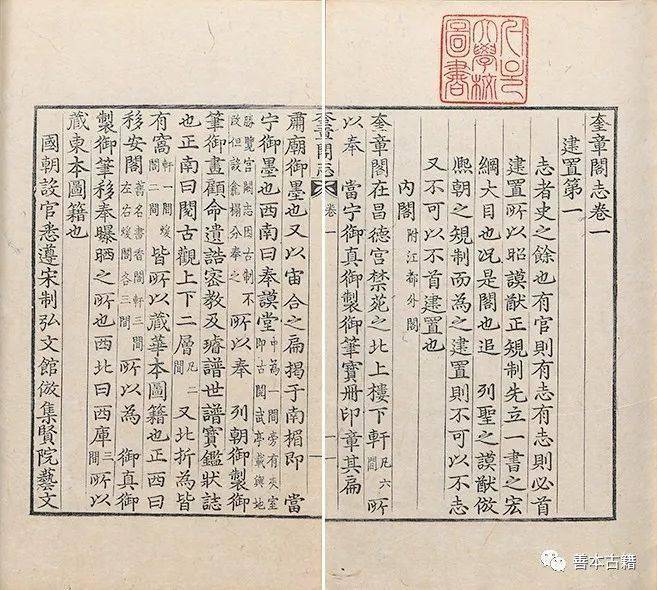 奎章閣志卷一
建置第一
志者史之餘也有官則有志有志則必首
建置所以昭謨猷正規制先立一書之宏
綱大目也況是閣也追 列聖之謨猷倣
熙朝之規制而為之建置則不可以不志
又不可以不首建置也
內閣 附江都外閣
奎章閣在昌德宮禁苑之北上樓下軒 凡六間 所
以奉 當宁御真御製御筆寶冊印章其扁
奎章閣志 卷一
肅廟御墨也又以宙合之扁揭于南楣即 當
宁御墨也西南曰奉謨堂 中為一間旁有夾室即古閱武亭載輿地
勝覽宮闕志因古制不改但設龕榻分奉之 所以奉 列朝御製御
筆御畫顧命遺誥密教及璿譜世譜寶鑑狀誌
也正南曰閱古觀上下二層 凡二間 又北折為皆
有窩 軒一間煖閣二間 皆所以藏華本圖籍也正西曰
移安閣 舊名書香閣軒三間左右煖閣各三間 所以為 御真御
製御筆移奉曝晒之所也西北曰西庫 三間 所以
藏東本圖籍也
國朝設官悉遵宋制弘文館倣集賢院藝文
大學校
圖書
善本古籍